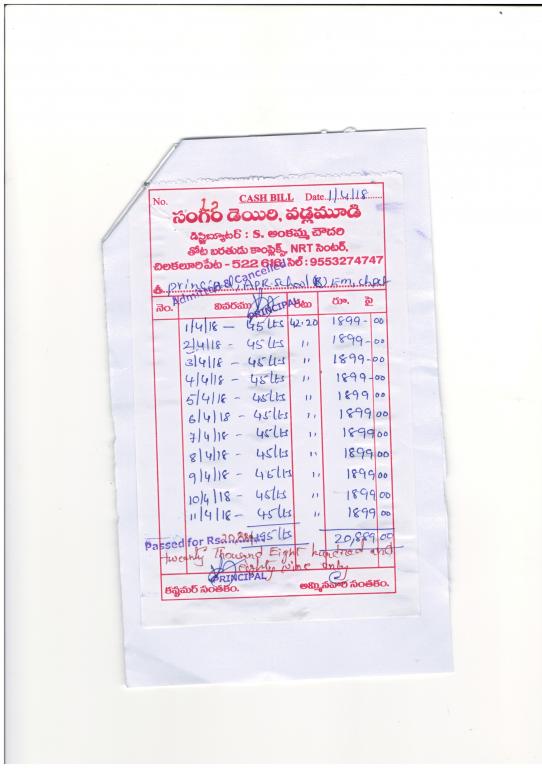 No. 12 CASH BILL Date. 1/4/18
సంగం డెయిరి, వడ్లమూడి
డిస్ట్రిబ్యూటర్ : S. అంకమ్మ చౌదరి
తోట బరతుడు కాంప్లెక్స్, NRT సెంటర్,
చిలకలూరిపేట - 522 616 సెల్ : 9553274747
శ్రీ. principal, APR School (B) E.m, chpet
Admitted & Cancelled
PRINCIPAL
నెం. వివరము రేటు రూ. పై
1/4/18 - 45 lts 42.20 1899-00
2/4/18 - 45 lts " 1899-00
3/4/18 - 45 lts " 1899-00
4/4/18 - 45 lts " 1899-00
5/4/18 - 45 lts " 1899 00
6/4/18 - 45 lts " 1899 00
7/4/18 - 45 lts " 1899 00
8/4/18 - 45 lts " 1899 00
9/4/18 - 45 lts " 1899 00
10/4/18 - 45 lts " 1899 00
11/4/18 - 45 lts " 1899 00
Passed for Rs. 20,889 495 lts 20,889.00
twenty Thousand Eight hundred and
eighty nine only
PRINCIPAL
కస్టమర్ సంతకం. అమ్మినవారి సంతకం.